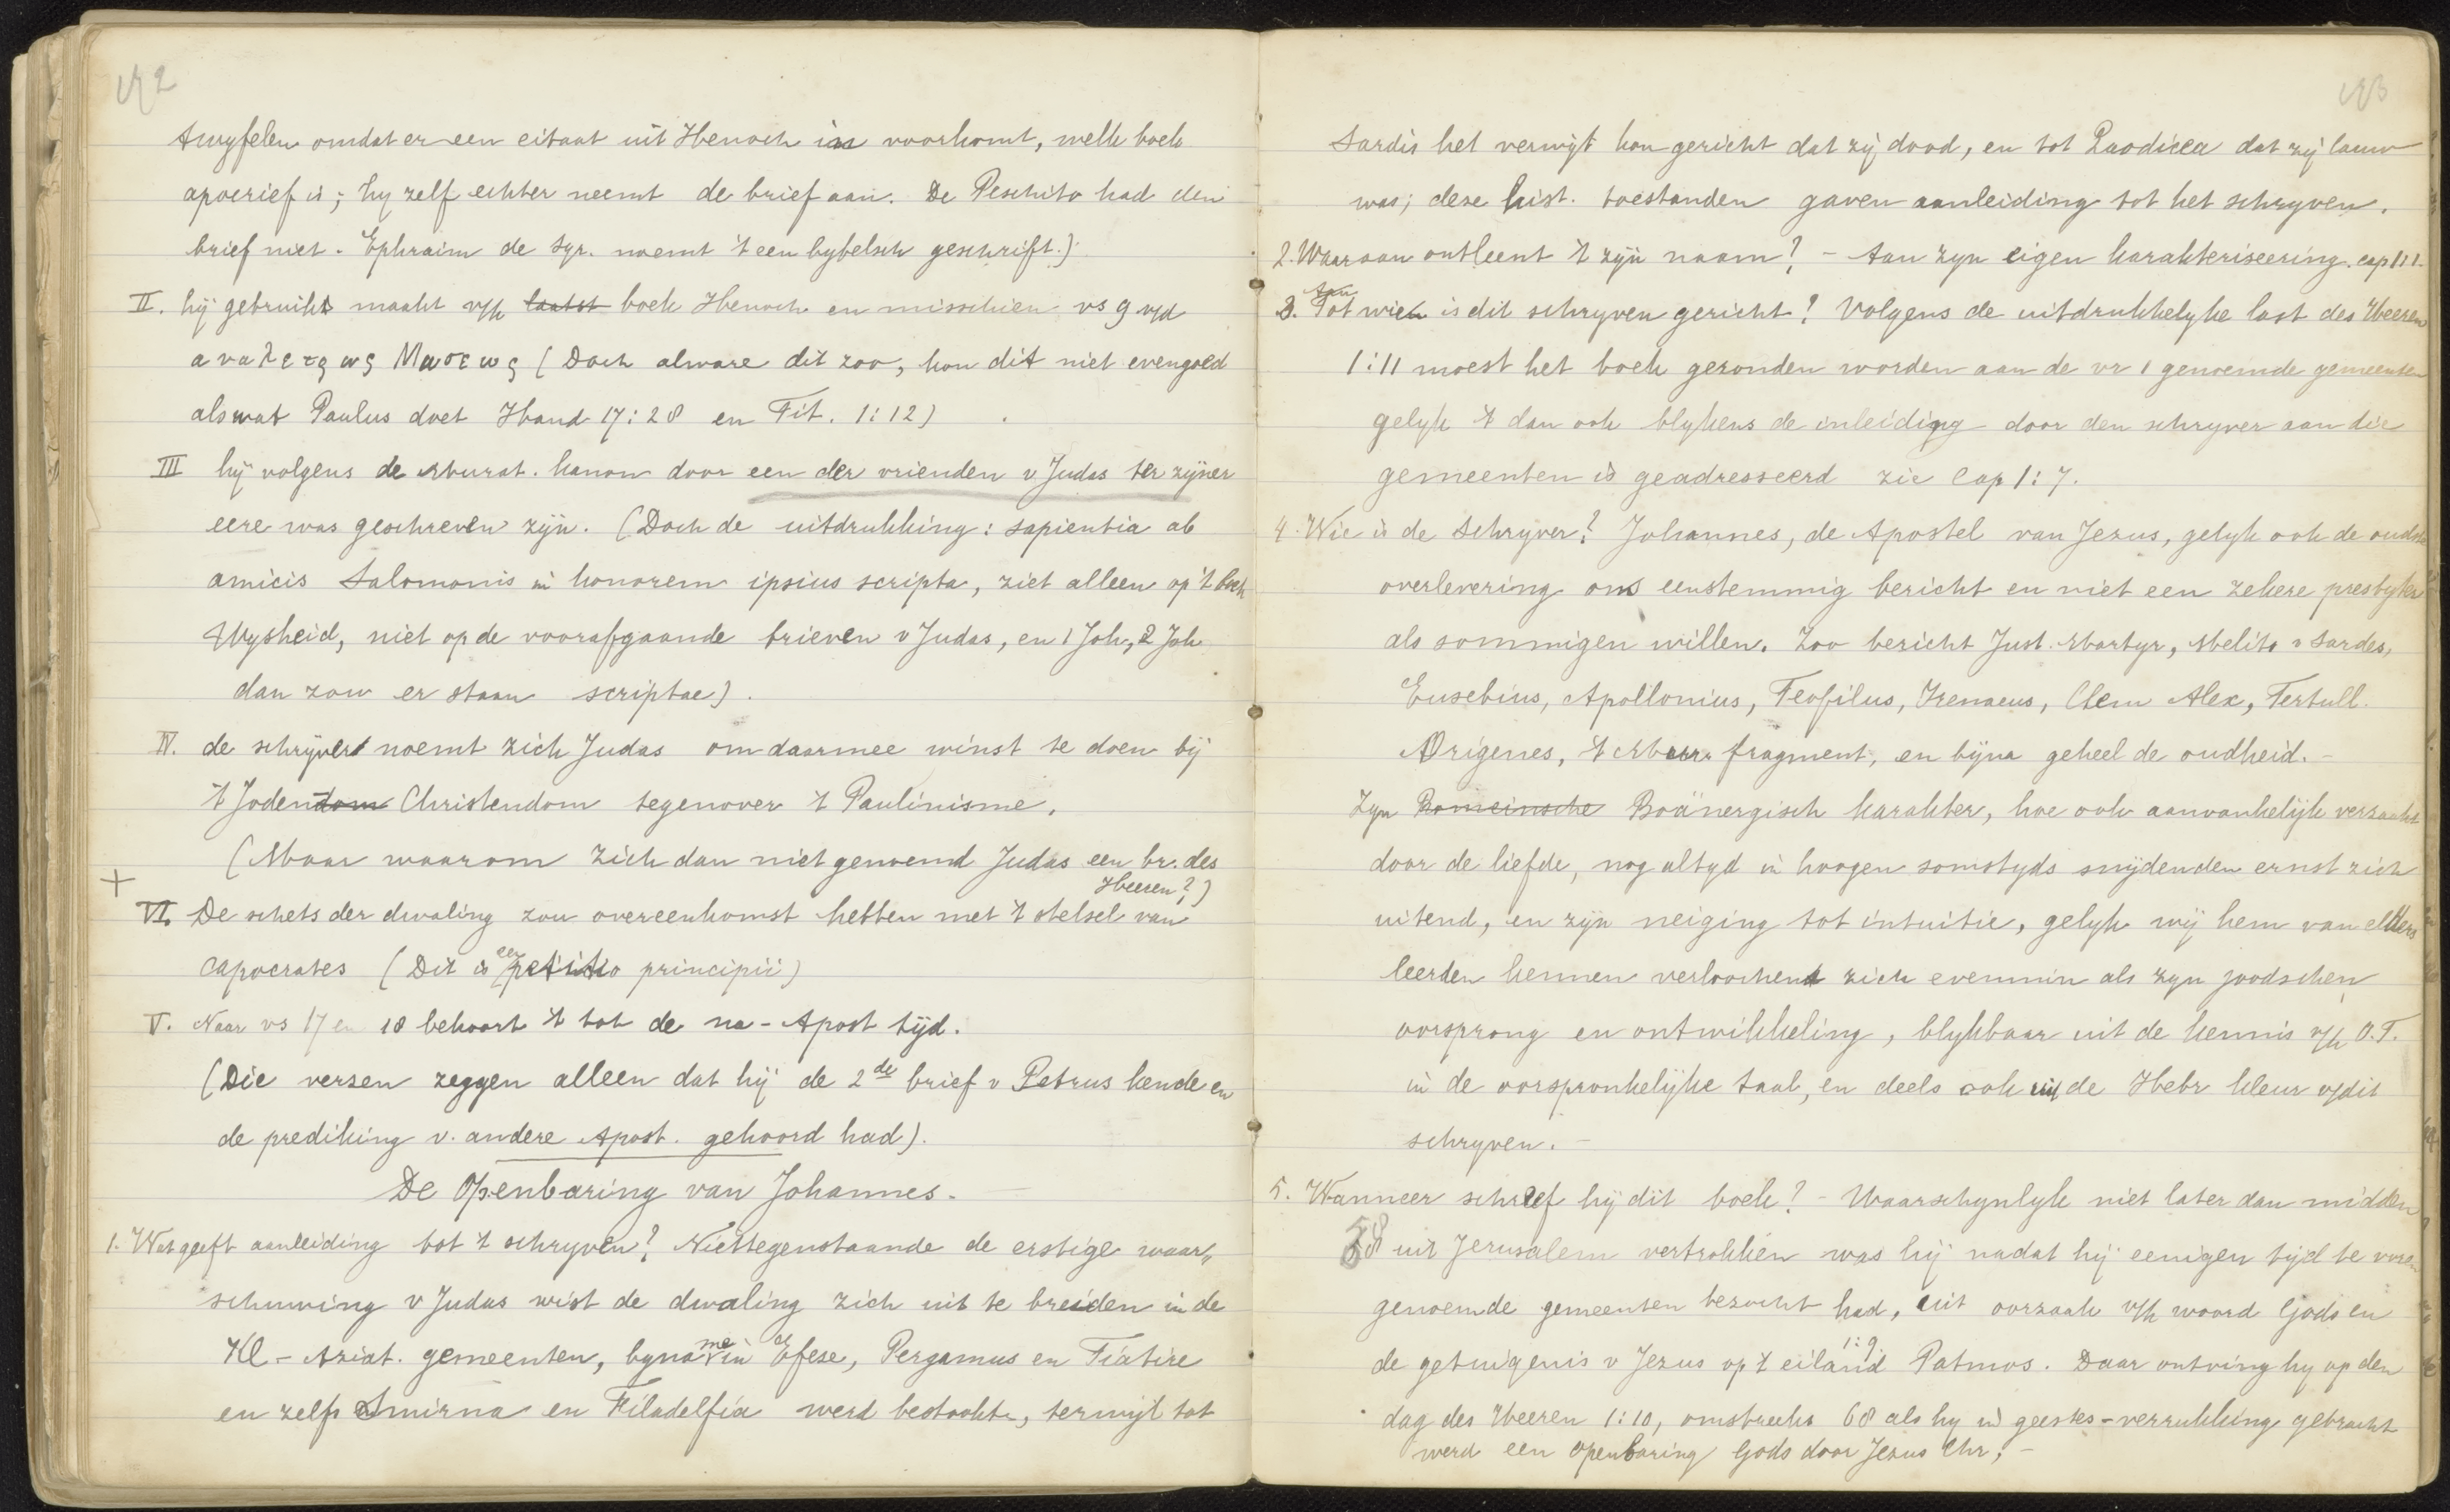 twyfelen omdat er een citaat uit Henoch in voorkomt, welk boek
apocrief is; hy zelf echter neemt de brief aan. De Peschito had den
brief niet. Ephraim de Syr. noemt 't een bybelsch geschrift.)
II. hij gebruikt maakt v/h laatst boek Henoch en misschien vs 9 v/d
αναλεψως Μωσεως (Doch alware dit zoo, kon dit niet evengoed
als wat Paulus doet Hand 17:28 en Tit. 1:12)
III hij volgens de Murat. kanon door een der vrienden v Judas ter zijner
eere was geschreven zijn. (Doch de uitdrukking: sapientia ab
amicis Salomonis in honorem ipsius scripta, ziet alleen op 't boek
Wysheid, niet op de voorafgaande brieven v Judas, en 1 Joh, 2 Joh
dan zou er staan scriptae).
IV. de schrijver noemt zich Judas om daarmee winst te doen bij
't Jodendom Christendom tegenover 't Paulinisme.
(Maar waarom zich dan niet genoemd Judas een br. des
Heeren?)
+
VI. De schets der dwaling zou overeenkomst hebben met 't stelsel van
Capocrates (Dit is een petitio principii)
V. Naar vs 17 en 18 behoort 't tot de na-Apost tijd.
(Die verzen zeggen alleen dat hij de 2de brief v Petrus kende en
de prediking v. andere Apost. gehoord had).
De Openbaring van Johannes.
1. Wat geeft aanleiding tot 't schryven? Niettegenstaande de erstige waar„
schuwing v Judas wist de dwaling zich uit te breiden in de
Kl-Aziat. gemeenten, byna me in Efese, Pergamus en Tiatire
en zelfs Smirna en Filadelfia werd bestookt, terwijl tot
Sardis het verwijt kon gericht dat zij dood, en tot Laodicea dat zij lauw
was; deze hist. toestanden gaven aanleiding tot het schryven.
2. Waaraan ontleent 't zijn naam? - Aan zyn eigen karakteriseering. cap 1:1.
3. Tot Aan wien is dit schryven gericht? Volgens de uitdrukkelyke last des Heeren
1:11 moest het boek gezonden worden aan de vr 1 genoemde gemeenten
gelyk 't dan ook blykens de inleiding door den schryver aan die
gemeenten is geadresseerd zie Cap 1:7.
4. Wie is de Schryver? Johannes, de Apostel van Jezus, gelyk ook de oudste
overlevering ons eenstemmig bericht en niet een zekere presbyter
als sommigen willen. Zoo bericht Just. Martyr, Melito v Sardes,
Eusebius, Apollonius, Teofilus, Irenaeus, Clem Alex, Tertull.
Origenes, 't Mur. fragment, en bijna geheel de oudheid. -
Zyn Romeinsche Boänergisch karakter, hoe ook aanvankelijk verzacht
door de liefde, nog altyd in hoogen somstyds snijdenden ernst zich
uitend, en zijn neiging tot intuitie, gelyk wij hem van elders
leerden kennen verloochent zich evenmin als zyn joodschen
oorsprong en ontwikkeling, blykbaar uit de kennis v/h O.T.
in de oorspronkelijke taal, en deels ook uit de Hebr kleur v/dit
schryven. -
5. Wanneer schreef hij dit boek? - Waarschynlyk niet later dan midden
58 uit Jerusalem vertrokken was hij nadat hij eenigen tijd te voren
genoemde gemeenten bezocht had, uit oorzaak v/h woord Gods en
de getuigenis v Jezus op 't eiland 1:9 Patmos. Daar ontving hy op den
dag des Heeren 1:10, omstreeks 68 als hy in geestes-verrukking gebracht
werd een openbaring Gods door Jezus Chr; -